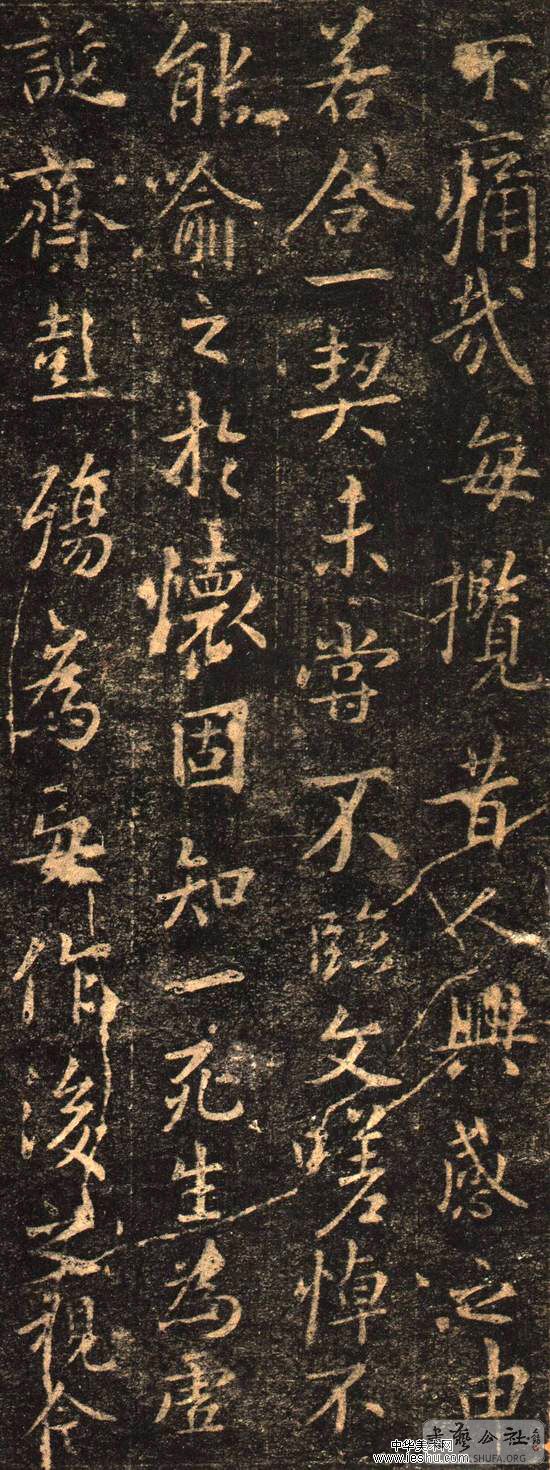 不痛哉每攬昔人興感之由
若合一契未嘗不臨文嗟悼不
能喻之於懷固知一死生為虛
誕齊彭殤為妄作後之視今
中华美术网
www.ieshu.com
書藝公社
.SHUFA.ORG